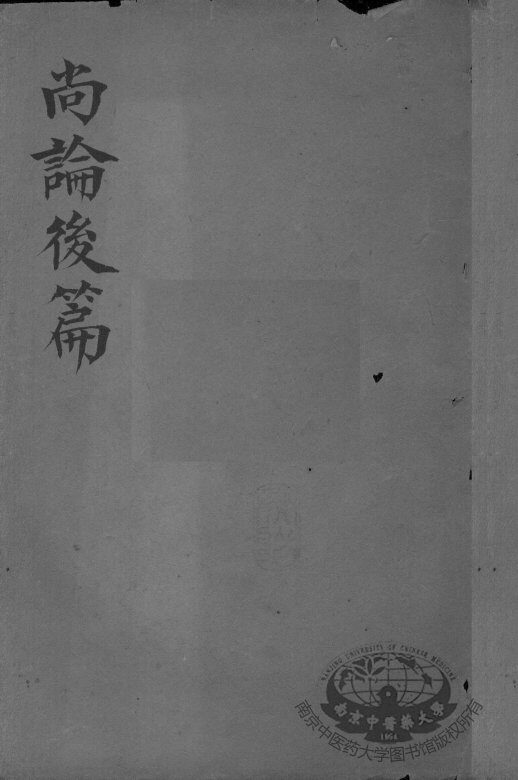 尚論後篇
NANJING UNIVERSITY OF CHINESE MEDICINE
南京中醫藥大學
1954
南京中医药大学图书馆版权所有